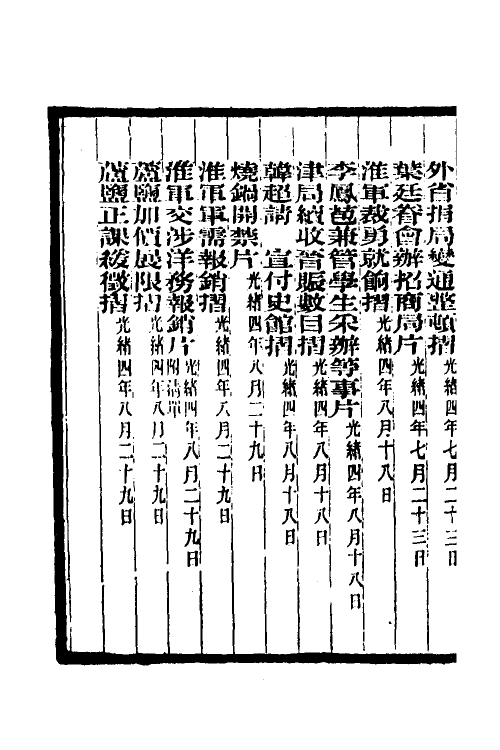 外省捐局變通整頓摺 光緒四年七月二十三日
葉廷眷會辦招商局片 光緒四年七月二十三日
淮軍裁勇就餉摺 光緒四年八月十八日
李鳳苞兼管學生采辦等事片 光緒四年八月十八日
津局續收晉賑數目摺 光緒四年八月十八日
韓超請 宣付史館摺 光緒四年八月十八日
燒鍋開禁片 光緒四年八月二十九日
淮軍軍需報銷摺 光緒四年八月二十九日
淮軍交涉洋務報銷片 附清單 光緒四年八月二十九日
蘆鹽加價展限摺 光緒四年八月二十九日
蘆鹽正課緩徵摺 光緒四年八月二十九日